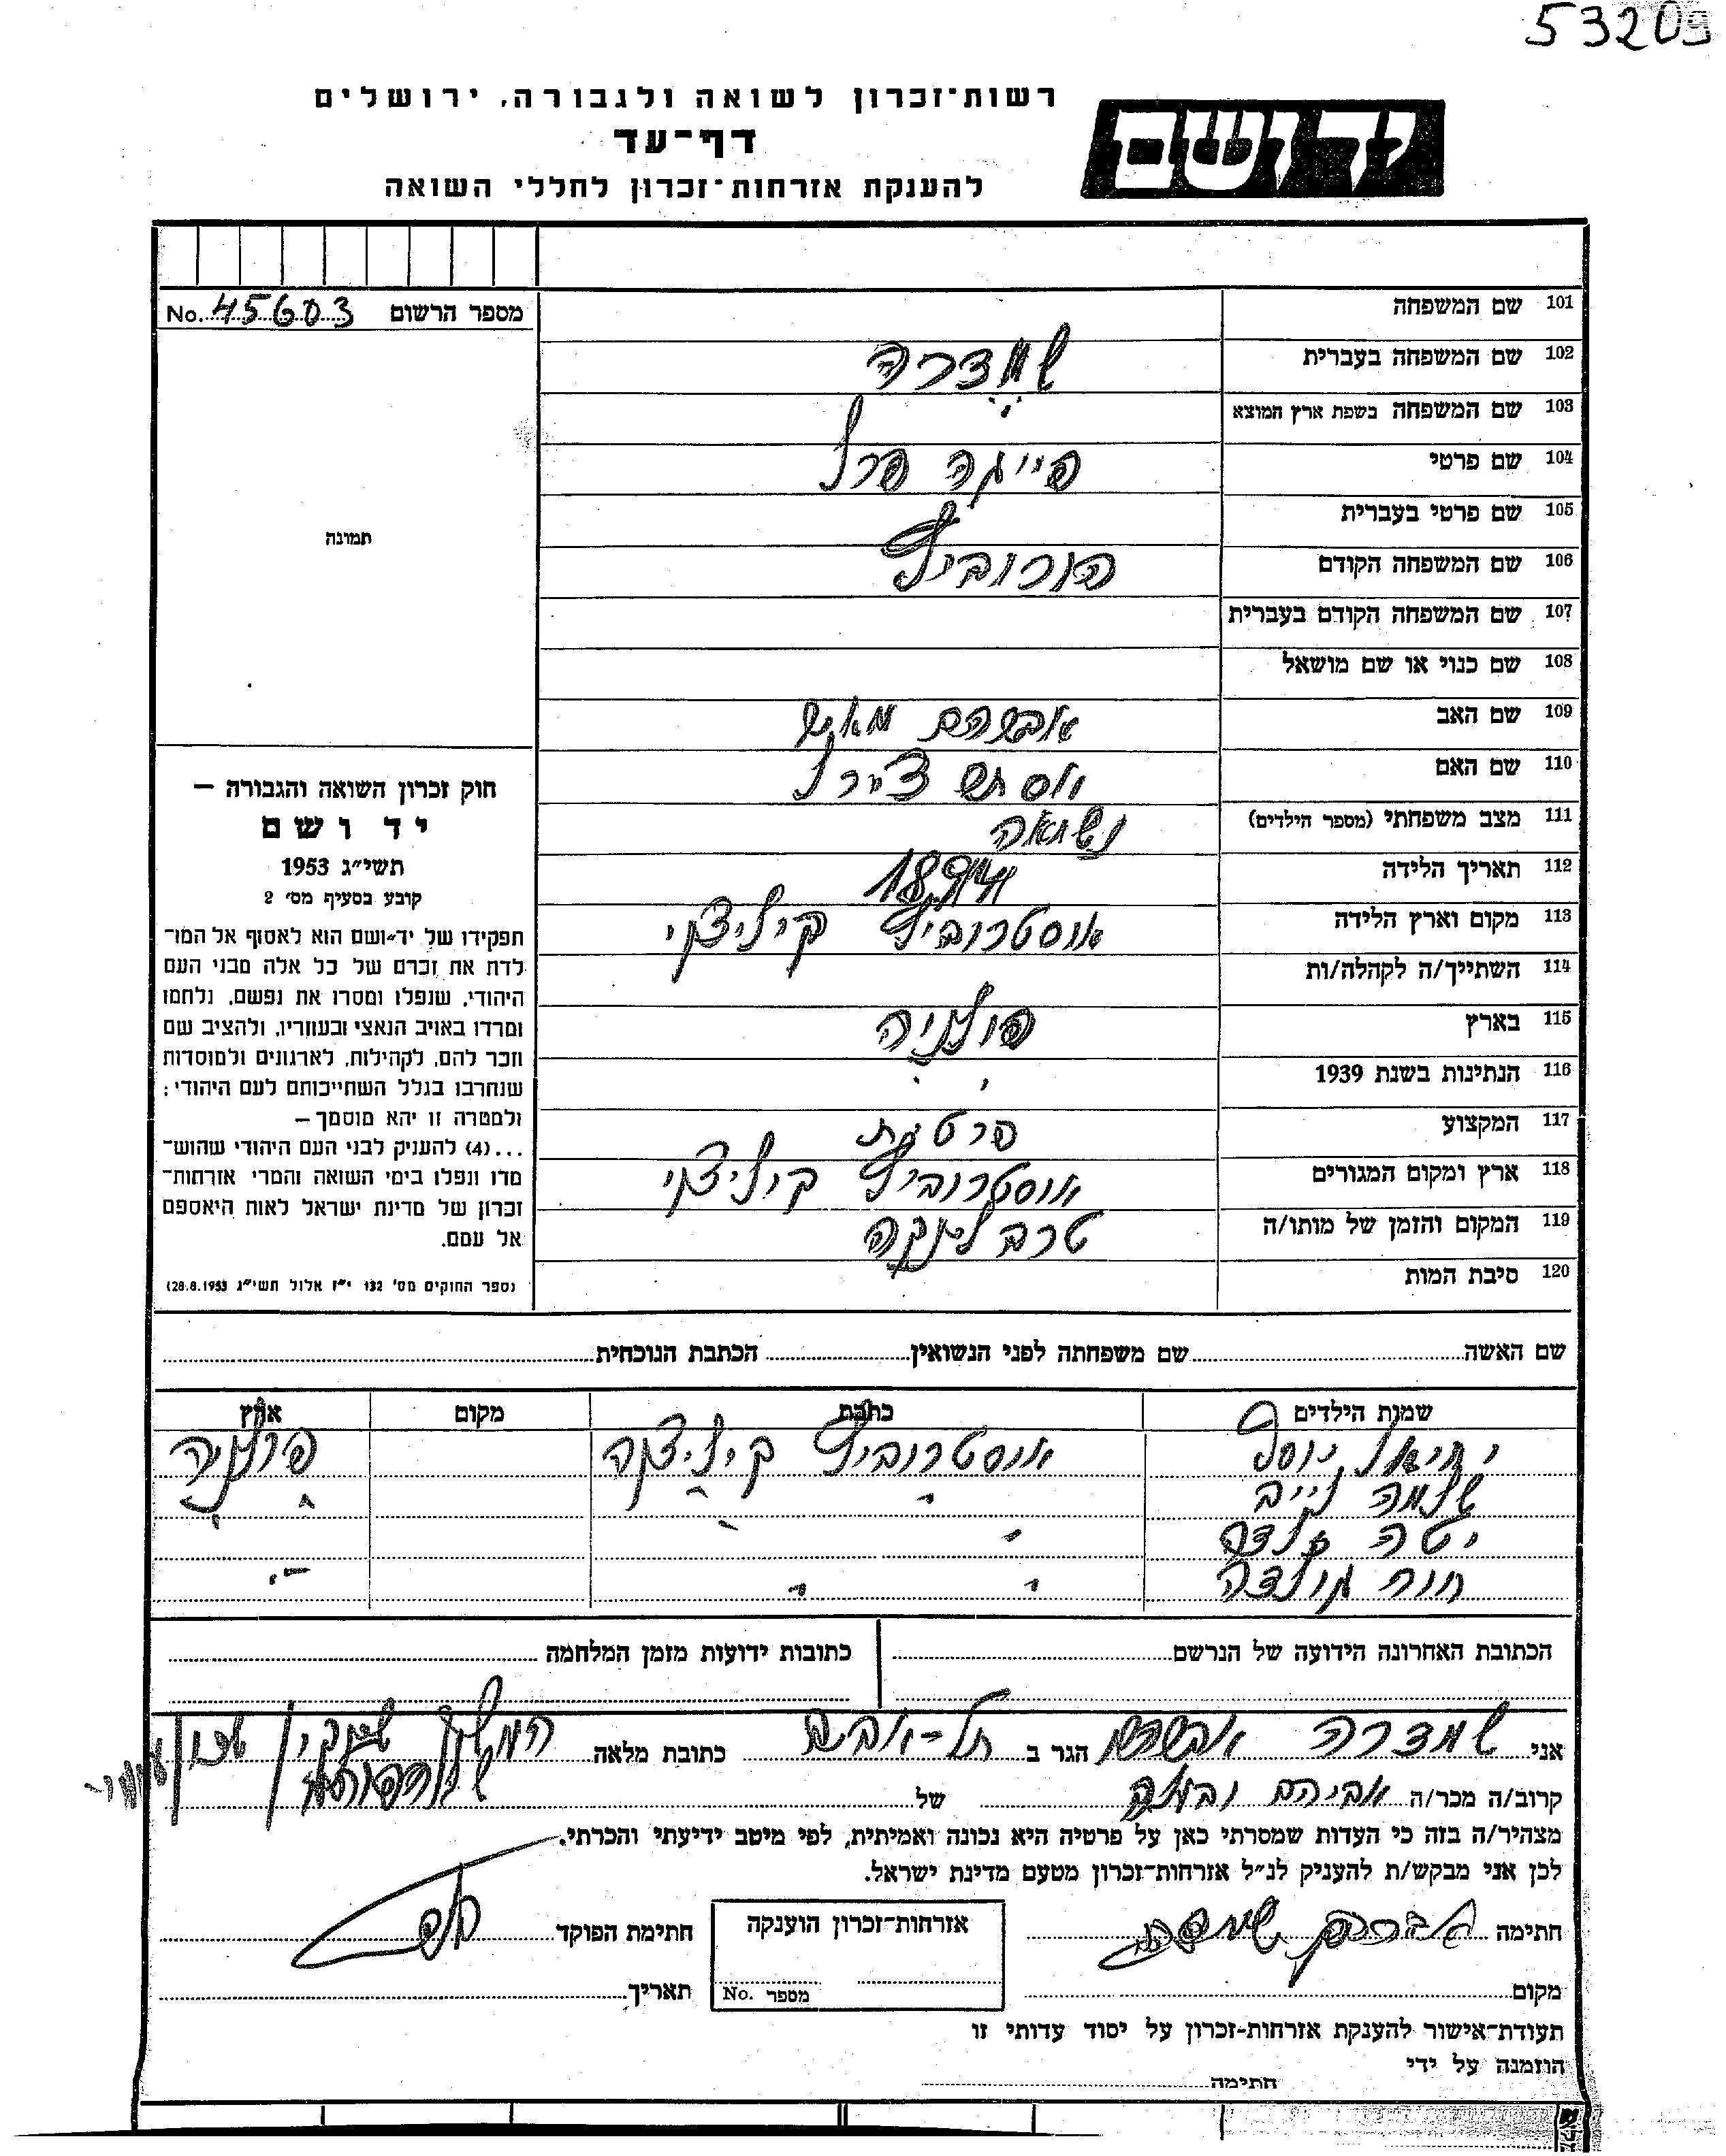 53209
רשות־זכרון לשואה ולגבורה, ירושלים
דף־עד
להענקת אזרחות־זכרון לחללי השואה
יד ושם
מספר הרשום No. 45603
תמונה
חוק זכרון השואה והגבורה —
יד ושם
תשי״ג 1953
קובע בסעיף מס׳ 2
תפקידו של יד־ושם הוא לאסוף אל המו־
לדת את זכרם של כל אלה מבני העם
היהודי, שנפלו ומסרו את נפשם, נלחמו
ומרדו באויב הנאצי ובעוזריו, ולהציב שם
וזכר להם, לקהילות, לארגונים ולמוסדות
שנחרבו בגלל השתייכותם לעם היהודי;
ולמטרה זו יהא מוסמך —
...(4) להעניק לבני העם היהודי שהוש־
מדו ונפלו בימי השואה והמרי אזרחות־
זכרון של מדינת ישראל לאות היאספם
אל עמם.
(ספר החוקים מס׳ 132 י״ז אלול תשי״ג 28.8.1953)
101 שם המשפחה
102 שם המשפחה בעברית שמדרה
103 שם המשפחה בשפת ארץ המוצא
104 שם פרטי פייגה פרל
105 שם פרטי בעברית
106 שם המשפחה הקודם הורוביץ
107 שם המשפחה הקודם בעברית
108 שם כנוי או שם מושאל
109 שם האב אברהם
110 שם האם
111 מצב משפחתי (מספר הילדים) נשואה
112 תאריך הלידה 1894
113 מקום וארץ הלידה אוסטרוביץ קיליצקי
114 השתייך/ה לקהלה/ות
115 בארץ פולניה
116 הנתינות בשנת 1939 " "
117 המקצוע
118 ארץ ומקום המגורים אוסטרוביץ קיליצקי
119 המקום והזמן של מותו/ה טרבלינקה
120 סיבת המות
שם האשה שם משפחתה לפני הנשואין הכתבת הנוכחית
שמות הילדים כתבת מקום ארץ
יחיאל יוסף אוסטרוביץ קיליצקה פולניה
שלמה לייב " " "
יטה זלדה " " "
חוה גולדה " " "
הכתובת האחרונה הידועה של הנרשם כתובות ידועות מזמן המלחמה
אני שמדרה אברהם הגר ב תל-אביב כתובת מלאה
קרוב/ה מכר/ה אביהם ובעלה של
מצהיר/ה בזה כי העדות שמסרתי כאן על פרטיה היא נכונה ואמיתית, לפי מיטב ידיעתי והכרתי.
לכן אני מבקש/ת להעניק לנ״ל אזרחות־זכרון מטעם מדינת ישראל.
חתימה אברהם אזרחות־זכרון הוענקה חתימת הפוקד
מקום מספר No. תאריך
תעודת־אישור להענקת אזרחות-זכרון על יסוד עדותי זו
הוזמנה על ידי
חתימה